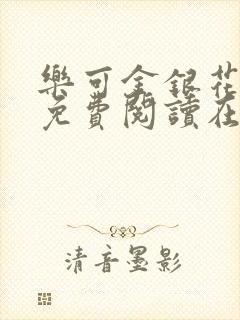 樂可金銀花
免費閱讀在
清音墨影